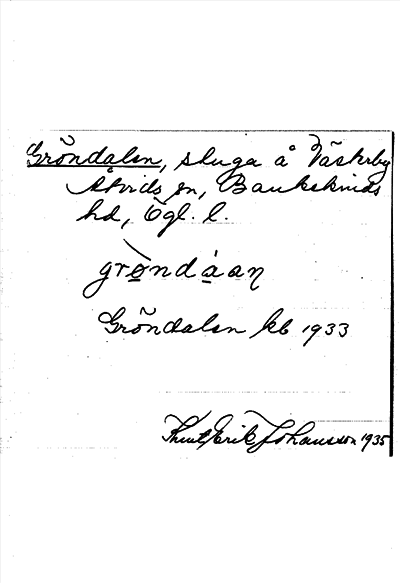 Gröndalen, stuga å Västerby
Åtvids sn, Bankekinds
hd, Ögl. l.
grøndàaṇ
Gröndalen kb 1933
Knut Erik Johansson 1935